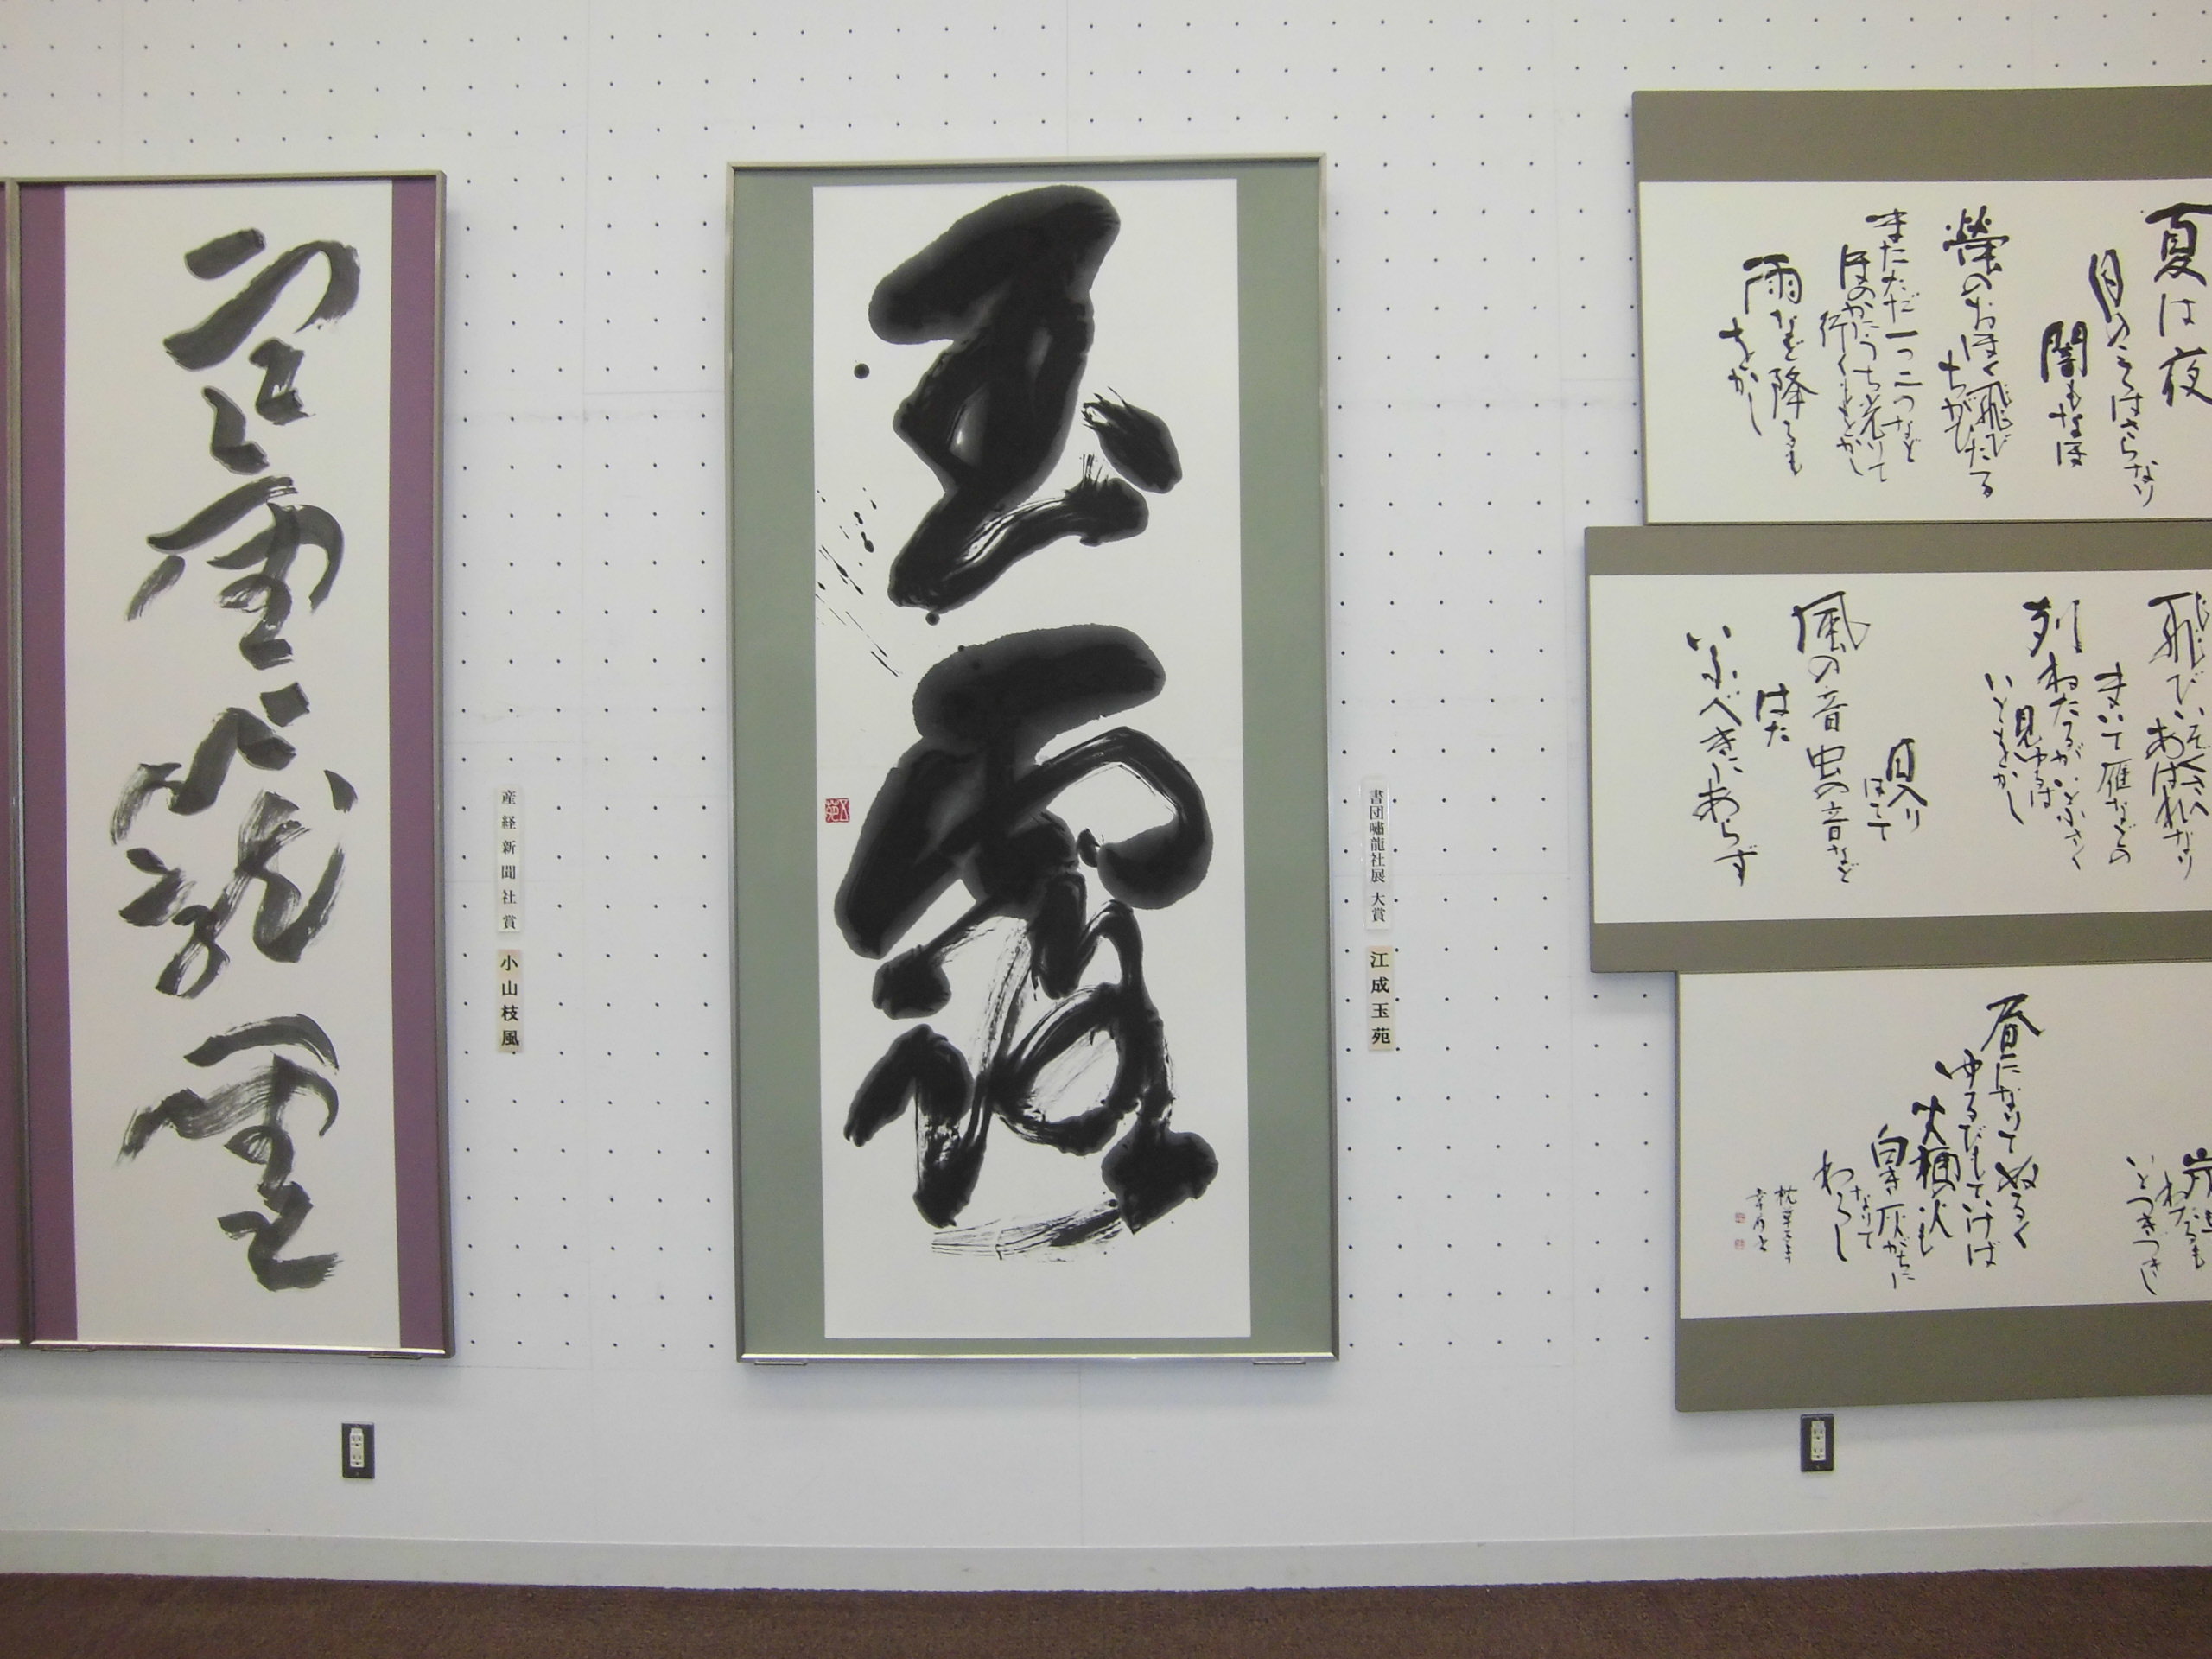 夏は夜
月のころはさらなり
闇もなほ
螢のおほく飛び
ちがひたる
またただ一つ二つなど
ほのかにうち光りて
行くもをかし
雨など降るも
をかし
飛びいそぐさへ
あはれなり
まいて雁などの
列ねたるがいと小さく
見ゆるは
いとをかし
日入り
はてて
風の音虫の音など
はた
いふべきにあらず
わたるも
いとつきづきし
昼になりてぬるく
ゆるびもていけば
火桶の火も
白き灰がちに
なりて
わろし
枕草子より
書団嘯龍社展 大賞
江成玉苑
玉露
産経新聞社賞
小山枝風